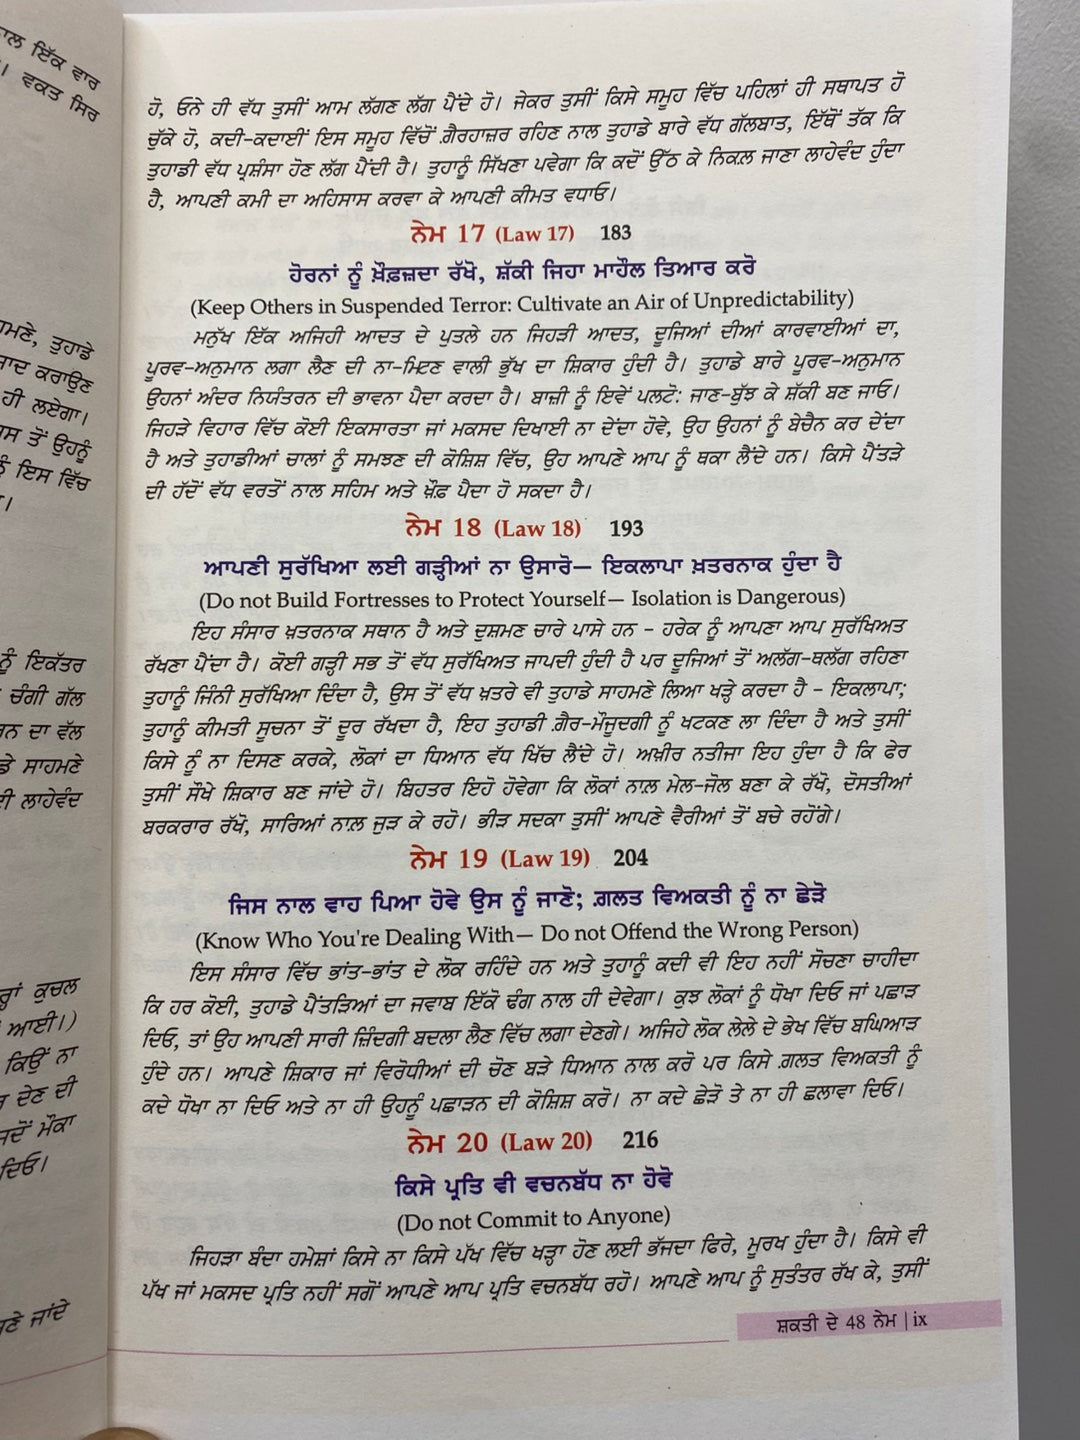 ਾਲ ਇੱਕ ਵਾਰ
। ਵਕਤ ਸਿਰ
ਹਮਣੇ, ਤੁਹਾਡੇ
ਜਾਦ ਕਰਾਉਣ
ਹੀ ਲਏਗਾ।
ਸ ਤੋਂ ਉਹਨੂੰ
ਇਸ ਵਿੱਚ
ਨੂੰ ਇਕੱਤਰ
ਚੰਗੀ ਗੱਲ
ਰਨ ਦਾ ਵੱਲ
ਡੇ ਸਾਹਮਣੇ
ਈ ਲਾਹੇਵੰਦ
ਕੁਚਲ
ਆਈ।)
ਕਿਉਂ ਨਾ
ਦੇਣ ਦੀ
ਜਦੋਂ ਮੌਕਾ
ਦਿਓ।
ਣੇ ਜਾਂਦੇ
ਹੋ, ਓਨੇ ਹੀ ਵੱਧ ਤੁਸੀਂ ਆਮ ਲੱਗਣ ਲੱਗ ਪੈਂਦੇ ਹੋ। ਜੇਕਰ ਤੁਸੀਂ ਕਿਸੇ ਸਮੂਹ ਵਿੱਚ ਪਹਿਲਾਂ ਹੀ ਸਥਾਪਤ ਹੋ
ਚੁੱਕੇ ਹੋ, ਕਦੀ-ਕਦਾਈਂ ਇਸ ਸਮੂਹ ਵਿੱਚੋਂ ਗ਼ੈਰਹਾਜ਼ਰ ਰਹਿਣ ਨਾਲ ਤੁਹਾਡੇ ਬਾਰੇ ਵੱਧ ਗੱਲਬਾਤ, ਇੱਥੋਂ ਤੱਕ ਕਿ
ਤੁਹਾਡੀ ਵੱਧ ਪ੍ਰਸ਼ੰਸਾ ਹੋਣ ਲੱਗ ਪੈਂਦੀ ਹੈ। ਤੁਹਾਨੂੰ ਸਿੱਖਣਾ ਪਵੇਗਾ ਕਿ ਕਦੋਂ ਉੱਠ ਕੇ ਨਿਕਲ਼ ਜਾਣਾ ਲਾਹੇਵੰਦ ਹੁੰਦਾ
ਹੈ, ਆਪਣੀ ਕਮੀ ਦਾ ਅਹਿਸਾਸ ਕਰਵਾ ਕੇ ਆਪਣੀ ਕੀਮਤ ਵਧਾਓ।
ਨੇਮ 17 (Law 17) 183
ਹੋਰਨਾਂ ਨੂੰ ਖ਼ੌਫ਼ਜ਼ਦਾ ਰੱਖੋ, ਸ਼ੱਕੀ ਜਿਹਾ ਮਾਹੌਲ ਤਿਆਰ ਕਰੋ
(Keep Others in Suspended Terror: Cultivate an Air of Unpredictability)
ਮਨੁੱਖ ਇੱਕ ਅਜਿਹੀ ਆਦਤ ਦੇ ਪੁਤਲੇ ਹਨ ਜਿਹੜੀ ਆਦਤ, ਦੂਜਿਆਂ ਦੀਆਂ ਕਾਰਵਾਈਆਂ ਦਾ,
ਪੂਰਵ-ਅਨੁਮਾਨ ਲਗਾ ਲੈਣ ਦੀ ਨਾ-ਮਿਟਣ ਵਾਲੀ ਭੁੱਖ ਦਾ ਸ਼ਿਕਾਰ ਹੁੰਦੀ ਹੈ। ਤੁਹਾਡੇ ਬਾਰੇ ਪੂਰਵ-ਅਨੁਮਾਨ
ਉਹਨਾਂ ਅੰਦਰ ਨਿਯੰਤਰਨ ਦੀ ਭਾਵਨਾ ਪੈਦਾ ਕਰਦਾ ਹੈ। ਬਾਜ਼ੀ ਨੂੰ ਇਵੇਂ ਪਲਟੋ: ਜਾਣ-ਬੁੱਝ ਕੇ ਸ਼ੱਕੀ ਬਣ ਜਾਓ।
ਜਿਹੜੇ ਵਿਹਾਰ ਵਿੱਚ ਕੋਈ ਇਕਸਾਰਤਾ ਜਾਂ ਮਕਸਦ ਦਿਖਾਈ ਨਾ ਦੇਂਦਾ ਹੋਵੇ, ਉਹ ਉਹਨਾਂ ਨੂੰ ਬੇਚੈਨ ਕਰ ਦੇਂਦਾ
ਹੈ ਅਤੇ ਤੁਹਾਡੀਆਂ ਚਾਲਾਂ ਨੂੰ ਸਮਝਣ ਦੀ ਕੋਸ਼ਿਸ਼ ਵਿੱਚ, ਉਹ ਆਪਣੇ ਆਪ ਨੂੰ ਥਕਾ ਲੈਂਦੇ ਹਨ। ਕਿਸੇ ਪੈਂਤੜੇ
ਦੀ ਹੱਦੋਂ ਵੱਧ ਵਰਤੋਂ ਨਾਲ ਸਹਿਮ ਅਤੇ ਖ਼ੌਫ਼ ਪੈਦਾ ਹੋ ਸਕਦਾ ਹੈ।
ਨੇਮ 18 (Law 18) 193
ਆਪਣੀ ਸੁਰੱਖਿਆ ਲਈ ਗੜ੍ਹੀਆਂ ਨਾ ਉਸਾਰੋ— ਇਕਲਾਪਾ ਖ਼ਤਰਨਾਕ ਹੁੰਦਾ ਹੈ
(Do not Build Fortresses to Protect Yourself— Isolation is Dangerous)
ਇਹ ਸੰਸਾਰ ਖ਼ਤਰਨਾਕ ਸਥਾਨ ਹੈ ਅਤੇ ਦੁਸ਼ਮਣ ਚਾਰੇ ਪਾਸੇ ਹਨ - ਹਰੇਕ ਨੂੰ ਆਪਣਾ ਆਪ ਸੁਰੱਖਿਅਤ
ਰੱਖਣਾ ਪੈਂਦਾ ਹੈ। ਕੋਈ ਗੜ੍ਹੀ ਸਭ ਤੋਂ ਵੱਧ ਸੁਰੱਖਿਅਤ ਜਾਪਦੀ ਹੁੰਦੀ ਹੈ ਪਰ ਦੂਜਿਆਂ ਤੋਂ ਅਲੱਗ-ਥਲੱਗ ਰਹਿਣਾ
ਤੁਹਾਨੂੰ ਜਿੰਨੀ ਸੁਰੱਖਿਆ ਦਿੰਦਾ ਹੈ, ਉਸ ਤੋਂ ਵੱਧ ਖ਼ਤਰੇ ਵੀ ਤੁਹਾਡੇ ਸਾਹਮਣੇ ਲਿਆ ਖੜ੍ਹੇ ਕਰਦਾ ਹੈ - ਇਕਲਾਪਾ;
ਤੁਹਾਨੂੰ ਕੀਮਤੀ ਸੂਚਨਾ ਤੋਂ ਦੂਰ ਰੱਖਦਾ ਹੈ, ਇਹ ਤੁਹਾਡੀ ਗ਼ੈਰ-ਮੌਜੂਦਗੀ ਨੂੰ ਖਟਕਣ ਲਾ ਦਿੰਦਾ ਹੈ ਅਤੇ ਤੁਸੀਂ
ਕਿਸੇ ਨੂੰ ਨਾ ਦਿਸਣ ਕਰਕੇ, ਲੋਕਾਂ ਦਾ ਧਿਆਨ ਵੱਧ ਖਿੱਚ ਲੈਂਦੇ ਹੋ। ਅਖ਼ੀਰ ਨਤੀਜਾ ਇਹ ਹੁੰਦਾ ਹੈ ਕਿ ਫੇਰ
ਤੁਸੀਂ ਸੌਖੇ ਸ਼ਿਕਾਰ ਬਣ ਜਾਂਦੇ ਹੋ। ਬਿਹਤਰ ਇਹੋ ਹੋਵੇਗਾ ਕਿ ਲੋਕਾਂ ਨਾਲ਼ ਮੇਲ-ਜੋਲ ਬਣਾ ਕੇ ਰੱਖੋ, ਦੋਸਤੀਆਂ
ਬਰਕਰਾਰ ਰੱਖੋ, ਸਾਰਿਆਂ ਨਾਲ਼ ਜੁੜ ਕੇ ਰਹੋ। ਭੀੜ ਸਦਕਾ ਤੁਸੀਂ ਆਪਣੇ ਵੈਰੀਆਂ ਤੋਂ ਬਚੇ ਰਹੋਂਗੇ।
ਨੇਮ 19 (Law 19) 204
ਜਿਸ ਨਾਲ ਵਾਹ ਪਿਆ ਹੋਵੇ ਉਸ ਨੂੰ ਜਾਣੋ; ਗ਼ਲਤ ਵਿਅਕਤੀ ਨੂੰ ਨਾ ਛੇੜੋ
(Know Who You're Dealing With— Do not Offend the Wrong Person)
ਇਸ ਸੰਸਾਰ ਵਿੱਚ ਭਾਂਤ-ਭਾਂਤ ਦੇ ਲੋਕ ਰਹਿੰਦੇ ਹਨ ਅਤੇ ਤੁਹਾਨੂੰ ਕਦੀ ਵੀ ਇਹ ਨਹੀਂ ਸੋਚਣਾ ਚਾਹੀਦਾ
ਕਿ ਹਰ ਕੋਈ, ਤੁਹਾਡੇ ਪੈਂਤੜਿਆਂ ਦਾ ਜਵਾਬ ਇੱਕੋ ਢੰਗ ਨਾਲ ਹੀ ਦੇਵੇਗਾ। ਕੁਝ ਲੋਕਾਂ ਨੂੰ ਧੋਖਾ ਦਿਓ ਜਾਂ ਪਛਾੜ
ਦਿਓ, ਤਾਂ ਉਹ ਆਪਣੀ ਸਾਰੀ ਜ਼ਿੰਦਗੀ ਬਦਲਾ ਲੈਣ ਵਿੱਚ ਲਗਾ ਦੇਣਗੇ। ਅਜਿਹੇ ਲੋਕ ਲੇਲੇ ਦੇ ਭੇਖ ਵਿੱਚ ਬਘਿਆੜ
ਹੁੰਦੇ ਹਨ। ਆਪਣੇ ਸ਼ਿਕਾਰ ਜਾਂ ਵਿਰੋਧੀਆਂ ਦੀ ਚੋਣ ਬੜੇ ਧਿਆਨ ਨਾਲ ਕਰੋ ਪਰ ਕਿਸੇ ਗ਼ਲਤ ਵਿਅਕਤੀ ਨੂੰ
ਕਦੇ ਧੋਖਾ ਨਾ ਦਿਓ ਅਤੇ ਨਾ ਹੀ ਉਹਨੂੰ ਪਛਾੜਨ ਦੀ ਕੋਸ਼ਿਸ਼ ਕਰੋ। ਨਾ ਕਦੇ ਛੇੜੋ ਤੇ ਨਾ ਹੀ ਛਲਾਵਾ ਦਿਓ।
ਨੇਮ 20 (Law 20) 216
ਕਿਸੇ ਪ੍ਰਤਿ ਵੀ ਵਚਨਬੱਧ ਨਾ ਹੋਵੋ
(Do not Commit to Anyone)
ਜਿਹੜਾ ਬੰਦਾ ਹਮੇਸ਼ਾਂ ਕਿਸੇ ਨਾ ਕਿਸੇ ਪੱਖ ਵਿੱਚ ਖੜ੍ਹਾ ਹੋਣ ਲਈ ਭੱਜਦਾ ਫਿਰੇ, ਮੂਰਖ ਹੁੰਦਾ ਹੈ। ਕਿਸੇ ਵੀ
ਪੱਖ ਜਾਂ ਮਕਸਦ ਪ੍ਰਤਿ ਨਹੀਂ ਸਗੋਂ ਆਪਣੇ ਆਪ ਪ੍ਰਤਿ ਵਚਨਬੱਧ ਰਹੋ। ਆਪਣੇ ਆਪ ਨੂੰ ਸੁਤੰਤਰ ਰੱਖ ਕੇ, ਤੁਸੀਂ
ਸ਼ਕਤੀ ਦੇ 48 ਨੇਮ | ix